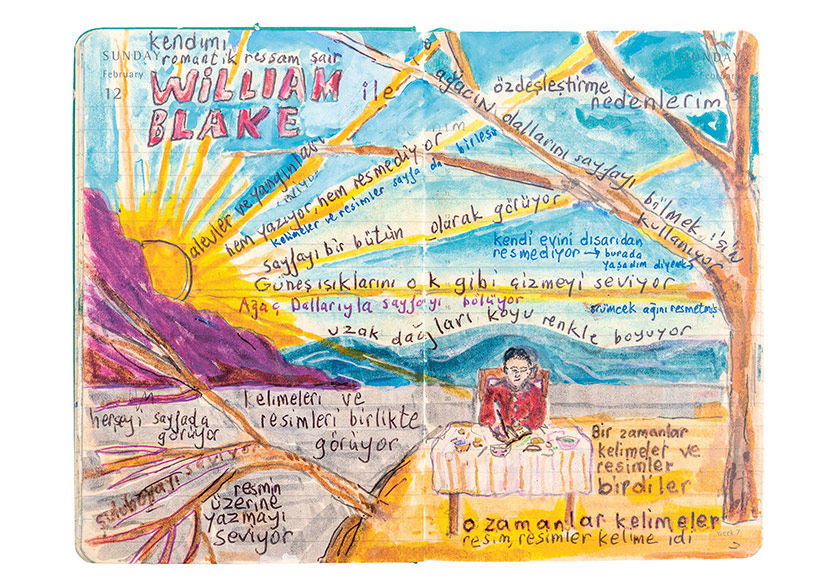 SUNDAY
February
12
kendimi
romantik ressam şair
WiLLiAM
BLAKE
ile
özdeşleştirme
nedenlerim
SUNDAY
February
ağacın dallarını sayfayı
bölmek için
kullanıyor
alevler ve yangınları
seviyor
hem yazıyor, hem resmediyor
kelimeler ve resimler sayfa da birleşi
sayfayı bir bütün olarak görüyor
kendi evini dısarıdan
resmediyor → burada
yaşadım diyerek
Güneş ışıklarını ok gibi çizmeyi seviyor
Ağaç Dallarıyla sayfayı bölüyor
örümcek ağını resmetmiş
uzak dağları koyu renkle boyuyor
herşeyi sayfada
görüyor
kelimeleri ve
resimleri birlikte
görüyor
suluboyayı seviyor
resmin
üzerine
yazmayı
seviyor
Bir zamanlar
kelimeler ve
resimler
birdiler
o zamanlar kelimeler
resim, resimler kelime idi
week 7
3